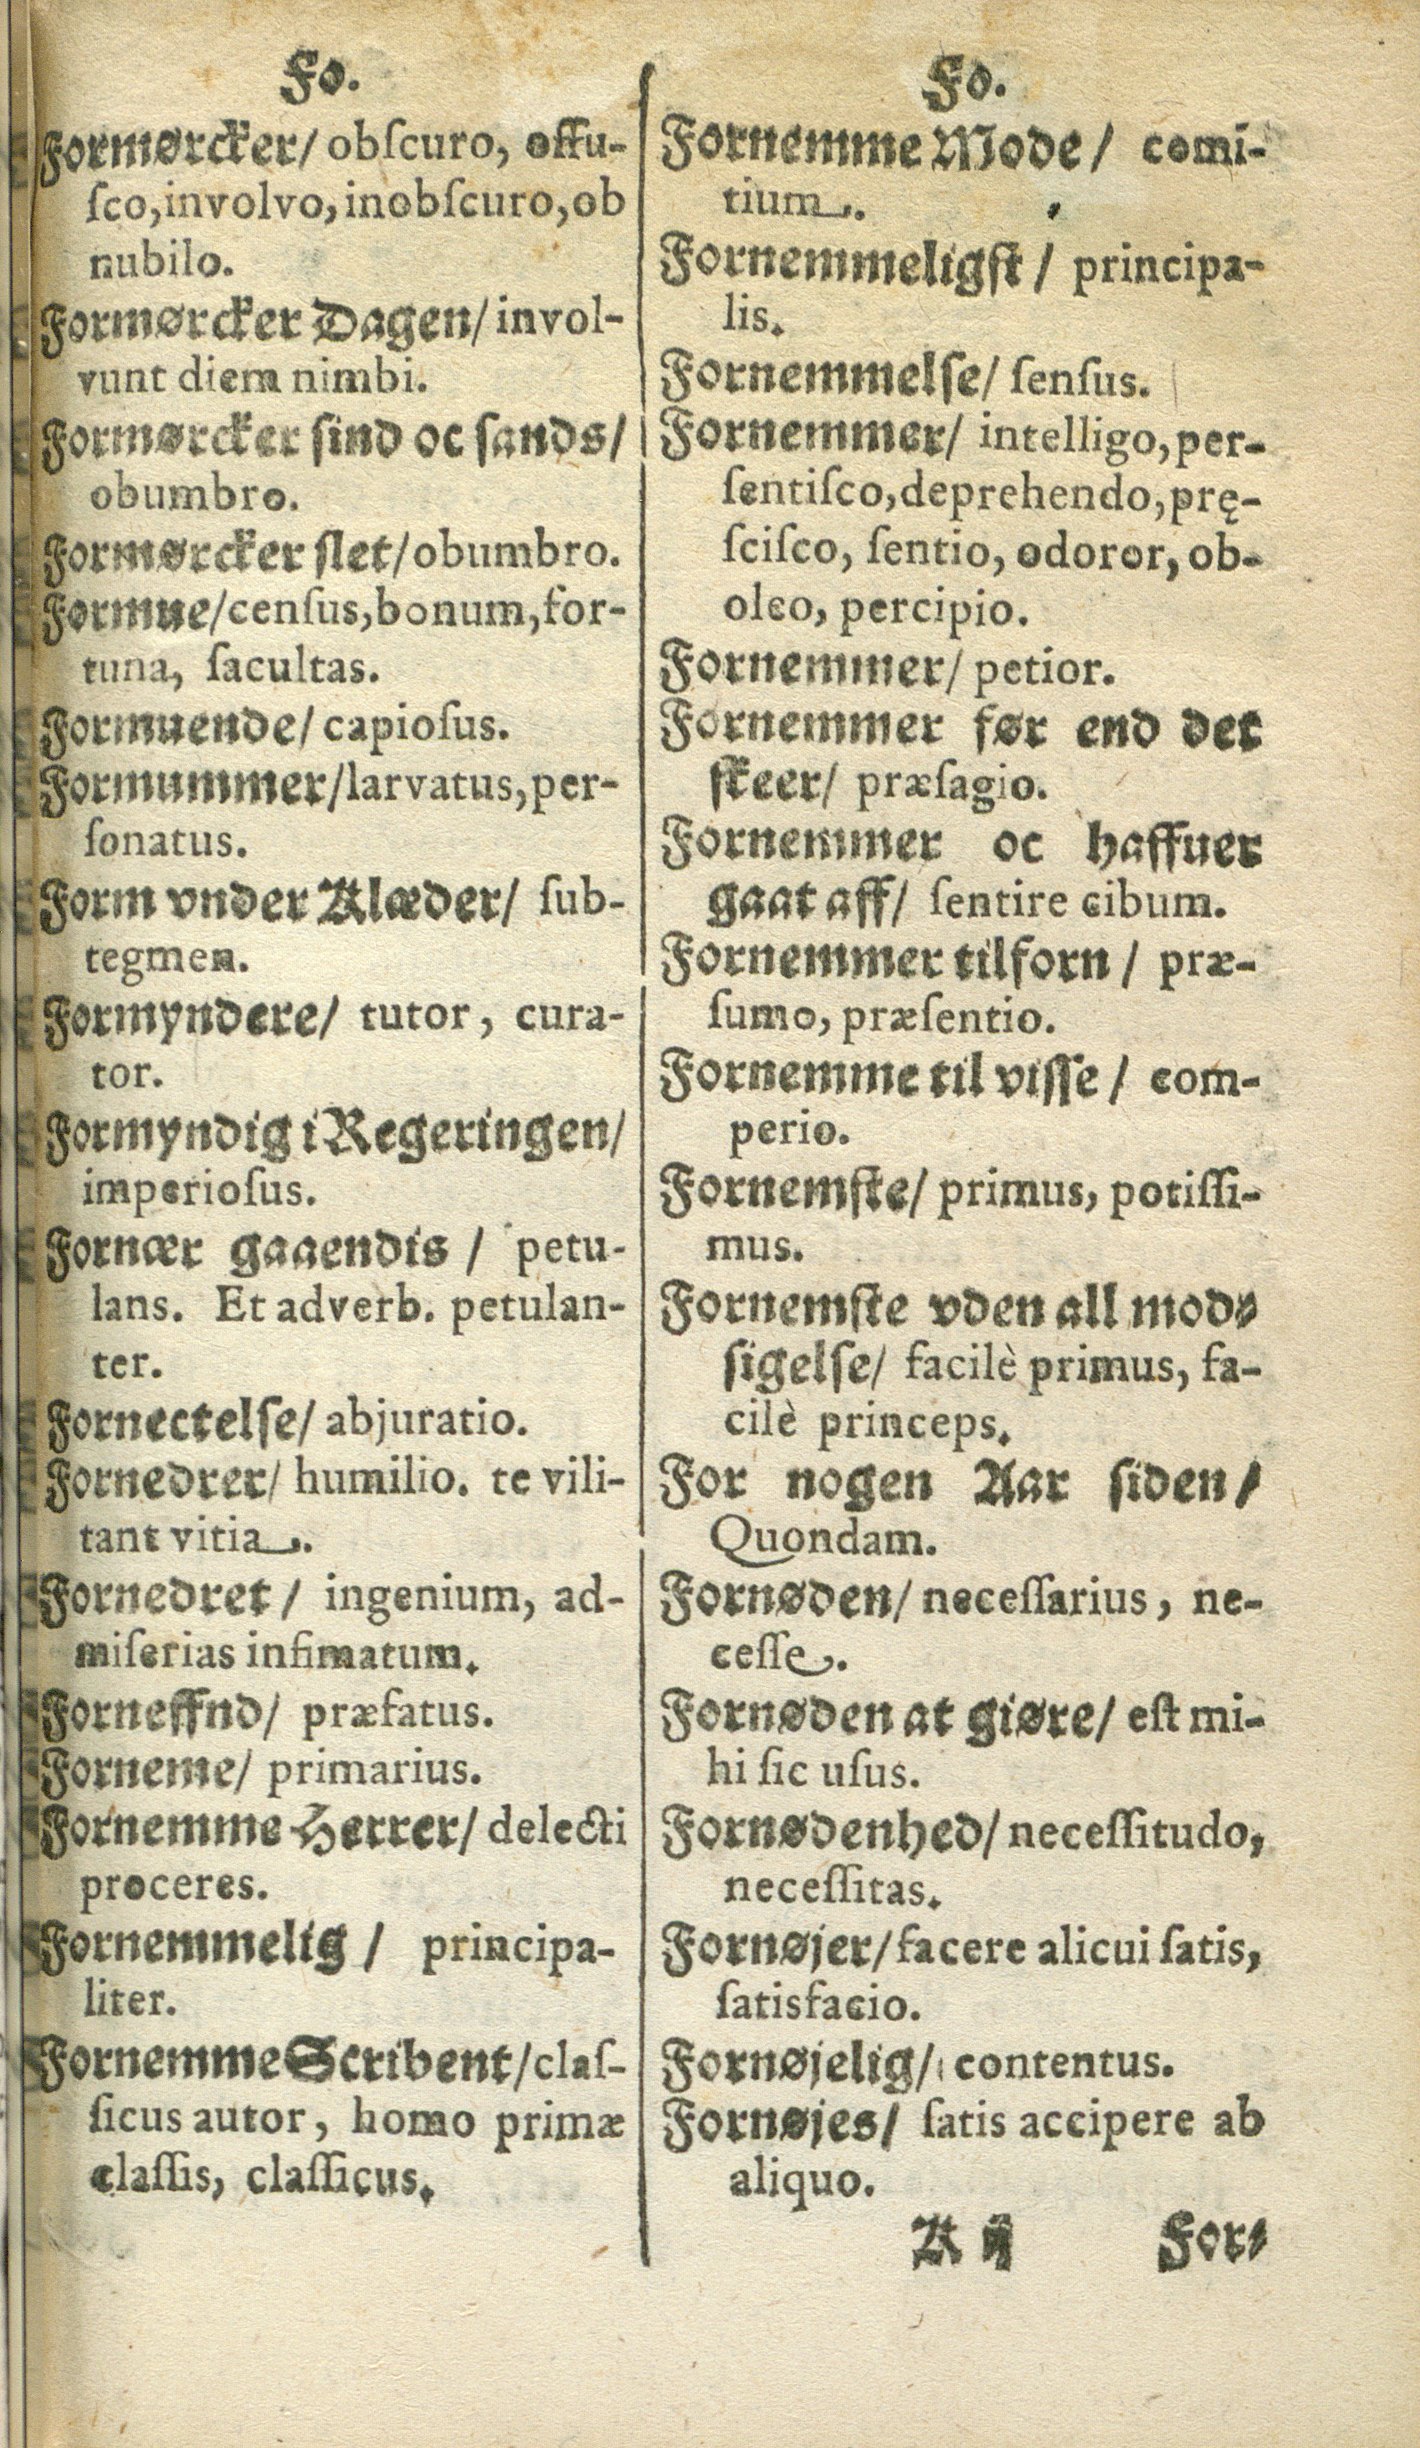 Fo.
Formørcker/ obſcuro, offu-
ſco, involvo, inobſcuro, ob
nubilo.
Formørcker Dagen/ invol-
vunt diem nimbi.
Formørcker ſind oc ſands/
obumbro.
Formørcker ſlet/ obumbro.
Formue/ cenſus, bonum, for-
tuna, facultas.
Formuende/ capioſus.
Formummer/ larvatus, per-
ſonatus.
Form vnder Klæder/ ſub-
tegmen.
Formyndere/ tutor, cura-
tor.
Formyndig i Regeringen/
imperioſus.
Fornær gaaendis / petu-
lans. Et adverb. petulan-
ter.
Fornectelſe/ abjuratio.
Fornedrer/ humilio. te vili-
tant vitia.
Fornedret / ingenium, ad-
miſerias infimatum.
Forneffnd/ præfatus.
Forneme/ primarius.
Fornemme Herrer/ delecti
proceres.
Fornemmelig / principa-
liter.
Fornemme Scribent/ claſ-
ſicus autor, homo primæ
claſſis, claſſicus.
Fo.
Fornemme Mode / comi-
tium.
Fornemmeligſt / principa-
lis.
Fornemmelſe/ ſenſus.
Fornemmer/ intelligo, per-
ſentiſco, deprehendo, prę-
ſciſco, ſentio, odoror, ob-
oleo, percipio.
Fornemmer/ petior.
Fornemmer før end det
ſkeer/ præſagio.
Fornemmer oc haffuer
gaat aff/ ſentire cibum.
Fornemmer tilforn / præ-
ſumo, præſentio.
Fornemme til viſſe / com-
perio.
Fornemſte/ primus, potiſſi-
mus.
Fornemſte vden all mod-
ſigelſe/ facilè primus, fa-
cilè princeps.
For nogen Aar ſiden/
Quondam.
Fornøden/ neceſſarius, ne-
ceſſe.
Fornøden at giøre/ eſt mi-
hi ſic uſus.
Fornødenhed/ neceſſitudo,
neceſſitas.
Fornøjer/ facere alicui ſatis,
ſatisfacio.
Fornøjelig/ contentus.
Fornøjes/ ſatis accipere ab
aliquo.
K ij For-